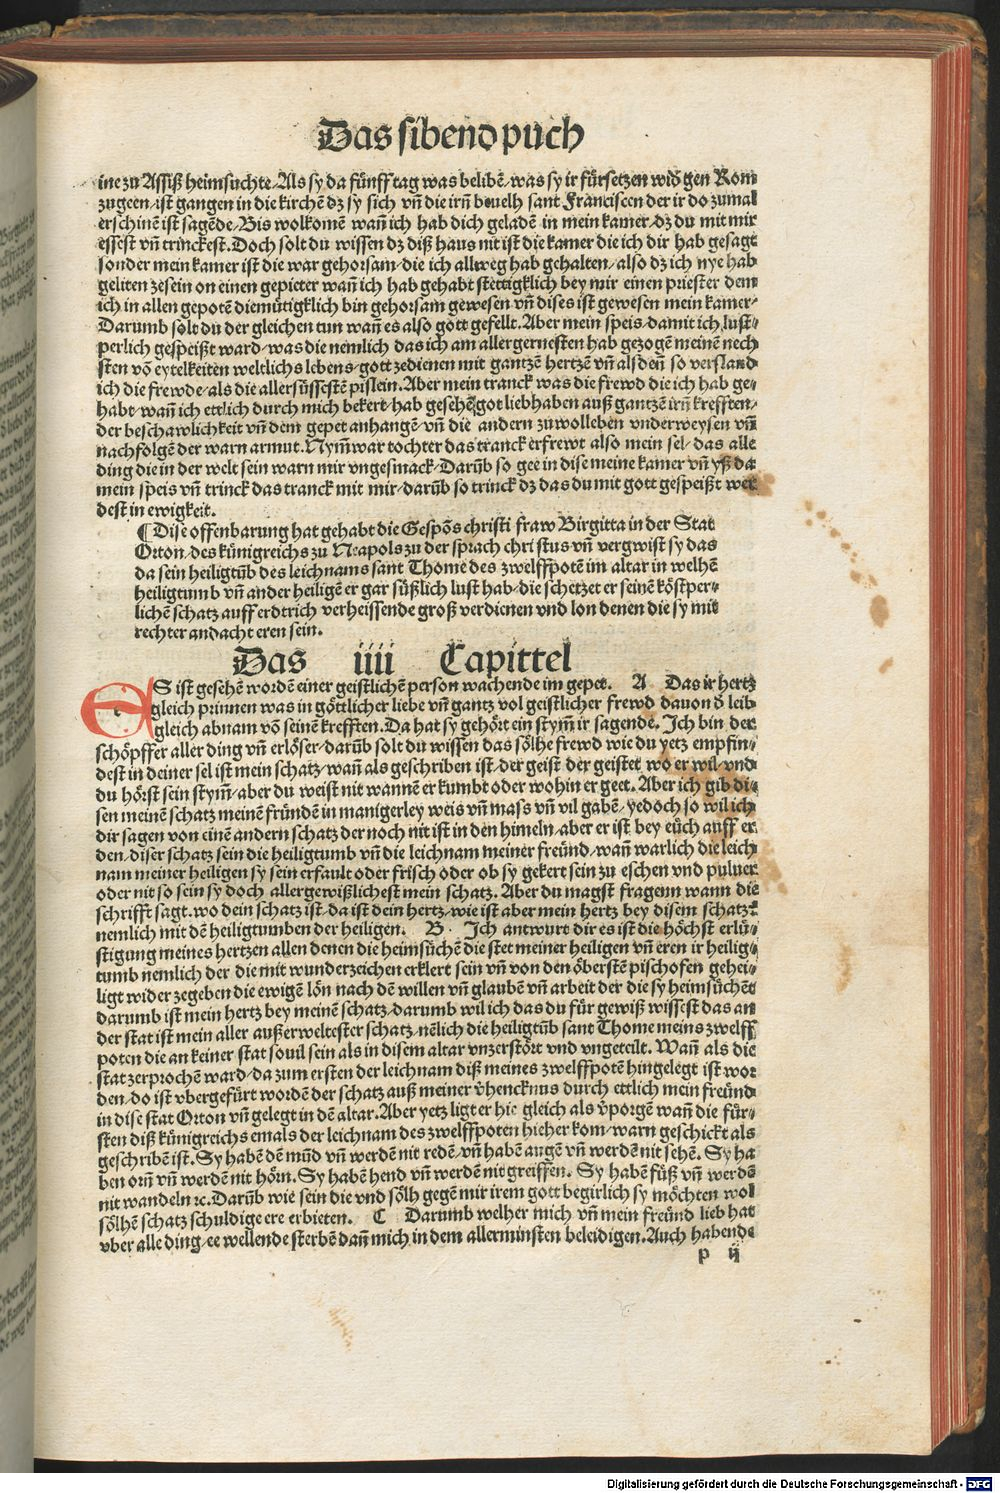 Das sibend puch
ine zu Assiß heimsuchte⸗Als sy da fünff tag was belibē⸗was sy ir fürsetzen wid̄ gen Rom
zugeen⸗ist gangen in die kirchē dz sy sich vn̄ die irn̄ beuelh sant Franciscen der ir do zumal
erschinē ist sagēde⸗Bis wolkomē wan̄ ich hab dich geladē in mein kamer⸗dz du mit mir
essest vn̄ trinckest. Doch solt du wissen dz diß haus nit ist die kamer die ich dir hab gesagt
sonder mein kamer ist die war gehorsam⸗die ich allweg hab gehalten⸗also dz ich nye hab
geliten zesein on einen gepieter wan̄ ich hab gehabt stettigklich bey mir einen priester dem
ich in allen gepotē diemütigklich bin gehorsam gewesen vn̄ dises ist gewesen mein kamer⸗
Darumb solt du der gleichen tun wan̄ es also gott gefellt. Aber mein speis⸗damit ich lust⸗
perlich gespeißt ward⸗was die nemlich das ich am aller gernesten hab gezogē meinē nech
sten vō eytelkeiten weltlichs lebens⸗gott zedienen mit gantzē hertzē vn̄ als den̄ so verstand
ich die frewde⸗als die allersüssestē pißlein. Aber mein tranck was die frewd die ich hab ge⸗
habt⸗wan̄ ich ettlich durch mich bekert⸗hab gesehē got liebhaben auß gantzē irn̄ krefften⸗
der beschawlichkeit vn̄ dem gepet anhangē⸗vn̄ die andern zuwolleben vnderweysen vn̄
nachfolgē der warn armut. Nym̄ war tochter das tranck erfrewt also mein sel⸗das alle
ding die in der welt sein warn mir vngesmack⸗Darūb so gee in dise meine kamer vn̄ yß da
mein speis vn̄ trinck das tranck mit mir⸗darūb so trinck dz das du mit gott gespeißt wer
dest in ewigkeit.
¶ Dise offenbarung hat gehabt die Gespōs christi fraw Birgitta in der Stat
Orton⸗des künigreichs zu Neapols zu der sprach christus vn̄ vergwist sy das
da sein heiligtūb des leichnams sant Thome des zwelffpotē im altar in welhē
heiligtumb vn̄ ander heiligē er gar süßlich lust hab⸗die schetzet er seinē köstper⸗
lichē schatz auff erdtrich verheissende groß verdienen vnd lon denen die sy mit
rechter andacht eren sein.
Das iiii Capittel
ES ist gesehē wordē einer geistlichē person wachende im gepet. A Das ir hertz
gleich prinnen was in göttlicher liebe vn̄ gantz vol geistlicher frewd dauon d̄ leib
gleich abnam vō seinē krefften. Da hat sy gehört ein stym̄ ir sagende. Ich bin der
schöpffer aller ding vn̄ erlöser⸗darūb solt du wissen das sölhe frewd wie du yetz empfin⸗
dest in deiner sel ist mein schatz⸗wan̄ als geschriben ist⸗der geist der geistet wo er wil⸗vnd
du hörst sein stym̄⸗aber du weist nit wannē er kumbt oder wohin er geet. Aber ich gib di⸗
sen meinē schatz meinē fründē in manigerley weis vn̄ mass vn̄ vil gabē⸗yedoch so wil ich
dir sagen von einē andern schatz der noch nit ist in den himeln⸗aber er ist bey eüch auff er
den⸗diser schatz sein die heiligtumb vn̄ die leichnam meiner freünd⸗wan̄ warlich die leich
nam meiner heiligen sy sein erfault oder frisch oder ob sy gekert sein zu eschen vnd puluer
oder nit so sein sy doch allergewißlichest mein schatz. Aber du magst fragenn wann die
schrifft sagt. wo dein schatz ist⸗da ist dein hertz⸗wie ist aber mein hertz bey disem schatz⸗
nemlich mit dē heiligtumben der heiligen. B. Ich antwurt dir es ist die höchst erlü⸗
stigung meines hertzen allen denen die heimsüchē die stet meiner heiligen vn̄ eren ir heilig⸗
tumb nemlich der die mit wunderzeichen erklert sein vn̄ von den öberstē pischofen gehei⸗
ligt wider zegeben die ewigē lön nach dē willen vn̄ glaubē vn̄ arbeit der die sy heimsüchēt
darumb ist mein hertz bey meinē schatz⸗darumb wil ich das du für gewiß wissest das an
der stat ist mein aller außerweltester schatz⸗nēlich die heiligtūb sant Thome meins zwelff
poten die an keiner stat souil sein als in disem altar vnzerstört vnd vngeteilt. Wan̄ als die
stat zerprochē ward⸗da zum ersten der leichnam diß meines zwelffpotē hingelegt ist wor
den⸗do ist vbergefürt wordē der schatz auß meiner v̄hencknus durch ettlich mein freünd
in dise stat Orton vn̄ gelegt in dē altar. Aber yetz ligt er hie gleich als v̄porgē wan̄ die für⸗
sten diß künigreichs emals der leichnam des zwelffpoten hieher kom⸗warn geschickt als
geschribē ist. Sy habē dē mūd vn̄ werdē nit redē⸗vn̄ habē augē vn̄ werdē nit sehē. Sy ha
ben orn̄ vn̄ werdē nit hörn. Sy habē hend vn̄ werdē nit greiffen. Sy habē füß vn̄ werdē
nit wandeln ꝛc. Darūb wie sein die vnd sölh gegē mir irem gott begirlich sy möchten wol
sölhē schatz schuldige ere erbieten. C Darumb welher mich vn̄ mein freünd lieb hat
vber alle ding⸗ee wellende sterbē dan̄ mich in dem allerminsten beleidigen. Auch habende
p ij
Digitalisierung gefördert durch die Deutsche Forschungsgemeinschaft - DFG